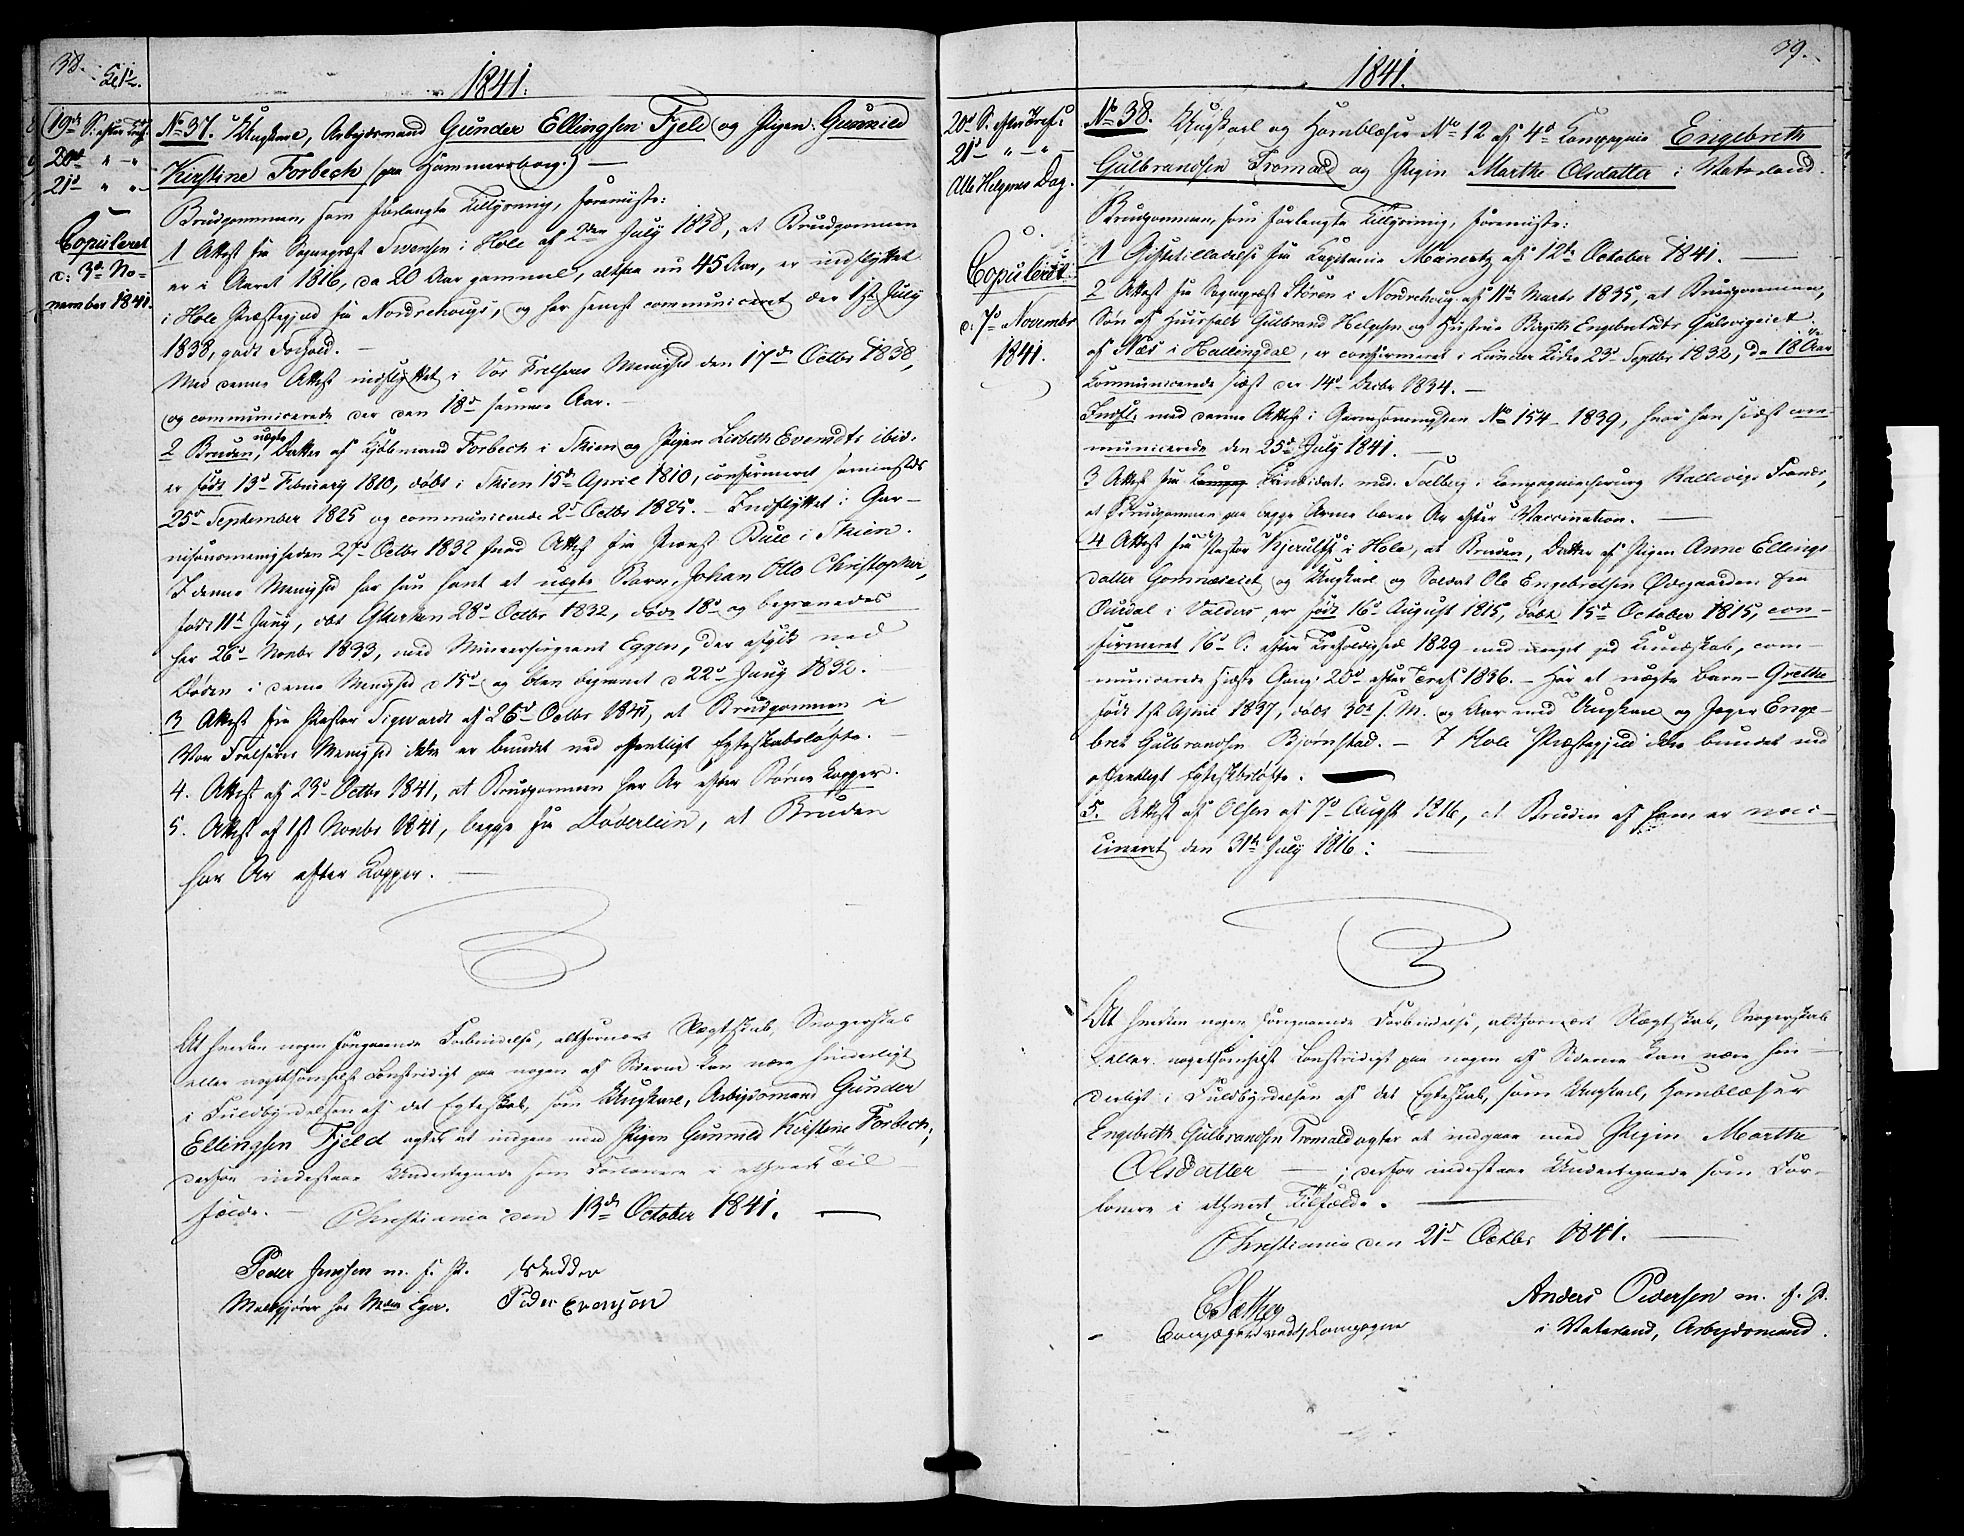 38.
Lest.
1841.
19de S: efter Tref:
20de " – " –
21de " " –
Copuleret
d: 3de No-
vember 1841.
No 37. Ungkarl, Arbejdsmand Gunder Ellingsen Fjeld og Pigen Gunnild
Kirstine Forbech (paa Hammersborg.) —
Brudgommen, som forlangte Tillysning, foreviiste:
1 Attest fra Sognepræst Svensen i Hole af 2den July 1838, at Brudgommen
er i Aaret 1816, da 20 Aar gammel, altsaa nu 45 Aar, er indflyttet
i Hole Præstegjeld fra Nordrehougs, og har senest communiceret der 1st July
1838, godt Forhold. —
Med denne Attest indflyttet i Vor Frelseres Menighed den 17de Octbr 1838,
og communicerede der den 18de samme Aar. —
2 Bruden, uægte Datter af Kjøbmand Forbech i Skien og Pigen Lisbeth Evensdtr ibid.
er født 13de February 1810, døbt i Skien 15de April 1810, confirmeret sammesteds
25de September 1825 og communicerede 2de Octbr 1825. — Indflyttet i Gar-
nisonsmenigheden 27de Octbr 1832 med Attest fra Provst Bull i Skien.
I denne Menighed har hun havt et uægte Barn, Johan Otto Christopher,
født 11te Juny, døbt 28de Octbr 1832, døde 18de og begravedes
her 26de Novbr 1833, med Mineersergeant Eggen, der afgik ved
Døden i denne Menighed d 15de og blev begravet d 22de Juny 1832.
3 Attest fra Pastor Sigwardt af 26de Octbr 1841, at Brudgommen i
Vor Frelseres Menighed ikke er bundet ved offentligt Egteskabsløfte. —
4. Attest af 23de Octbr 1841, at Brudgommen har Ar efter Børne Kopper.
5. Attest af 1st Novbr 1841, begge fra Døderlein, at Bruden
har Ar efter Kopper. —
At hverken nogen foregaaende Forbindelse, altfornær Slægtskab, Svogerskab
eller nogetsomhelst Lovstridigt paa nogen af Siderne kan være hinderligt
i Fuldbyrdelsen af det Egteskab, som Ungkarl, Arbejdsmand Gunder
Ellingsen Fjeld agter at indgaae med Pigen Gunnild Kirstine Forbech,
derfor indestaae Undertegnede som Forlovere i ethvert Til
fælde. —
Christiania den 13de October 1841. —
Peder Jensen m. f. P.
hos Eger.
Peder Evensen
39.
1841.
20de S. efter Tref:
21de " – " –
Alle Helgenes Dag.
Copuleret
d: 7de Novembr
1841.
No 38. Ungkarl og Hornblæser No 12 af 4de Kompagnie Engebreth
Gulbrandsen Tromald og Pigen Marthe Olsdatter i Vaterland.
Brudgommen, som forlangte Tillysning, foreviiste:
1 Giftetilladelse fra Kapitaine Meinertz af 12te October 1841. —
2 Attest fra Sognepræst Stören i Nordrehoug af 11te Marts 1835, at Brudgommen,
Søn af Gulbrand Helgesen og Hustrue Birgith Engebretsdtr
af Næs i Hallingdal, er confirmeret i Lunder Kirke 23de Septbr 1832, da 18 Aar
Communicerede sidst der 14de Decbr 1834. —
Indfl: med denne Attest i Garnisonsmenigheden No 154 – 1839, hvor han sidst com-
municerede den 25de July 1841. —
3 Attest fra Kandidat. med. Solberg i Kompagniechirurg Fravær,
at Brudgommen paa begge Arme bærer Ar efter Vaccination. —
4 Attest fra Pastor Kjerulff i Hole, at Bruden, Datter af Pigen Anne Ellings
datter og Ungkarl og Soldat Ole Engebretsen Ødegaarden fra
Ourdal i Valders, er født 16de August 1815, døbt 15de October 1815, con-
firmeret 16de S: efter Trefoldighed 1829 med meget god Kundskab, com-
municerede sidste Gang 20de efter Tref 1836. — Har et uægte Barn – Grethe
født 1st April 1837, døbt 30de s. M. og Aar med Ungkarl og Jæger Enge-
bret Gulbrandsen Bjørnstad. — I Hole Præstegjeld ikke bundet ved
offentligt Egteskabsløfte. —
5. Attest af Olsen af 7de August 1816, at Bruden af ham er vac-
cineret den 31te July 1816. —
At hverken nogen foregaaende Forbindelse, altfornært Slægtskab, Svogerskab
eller nogetsomhelst Lovstridigt paa nogen af Siderne kan være hin-
derligt i Fuldbyrdelsen af det Egteskab, som Ungkarl, Hornblæser
Engebreth Gulbrandsen Tromald agter at indgaae med Pigen Marthe
Olsdatter —, derfor indestaae Undertegnede som For-
lovere i ethvert Tilfælde. —
Christiania den 21de Octbr 1841. —
Anders Pedersen m. f. P.
i Vaterland, Arbejdsmand.